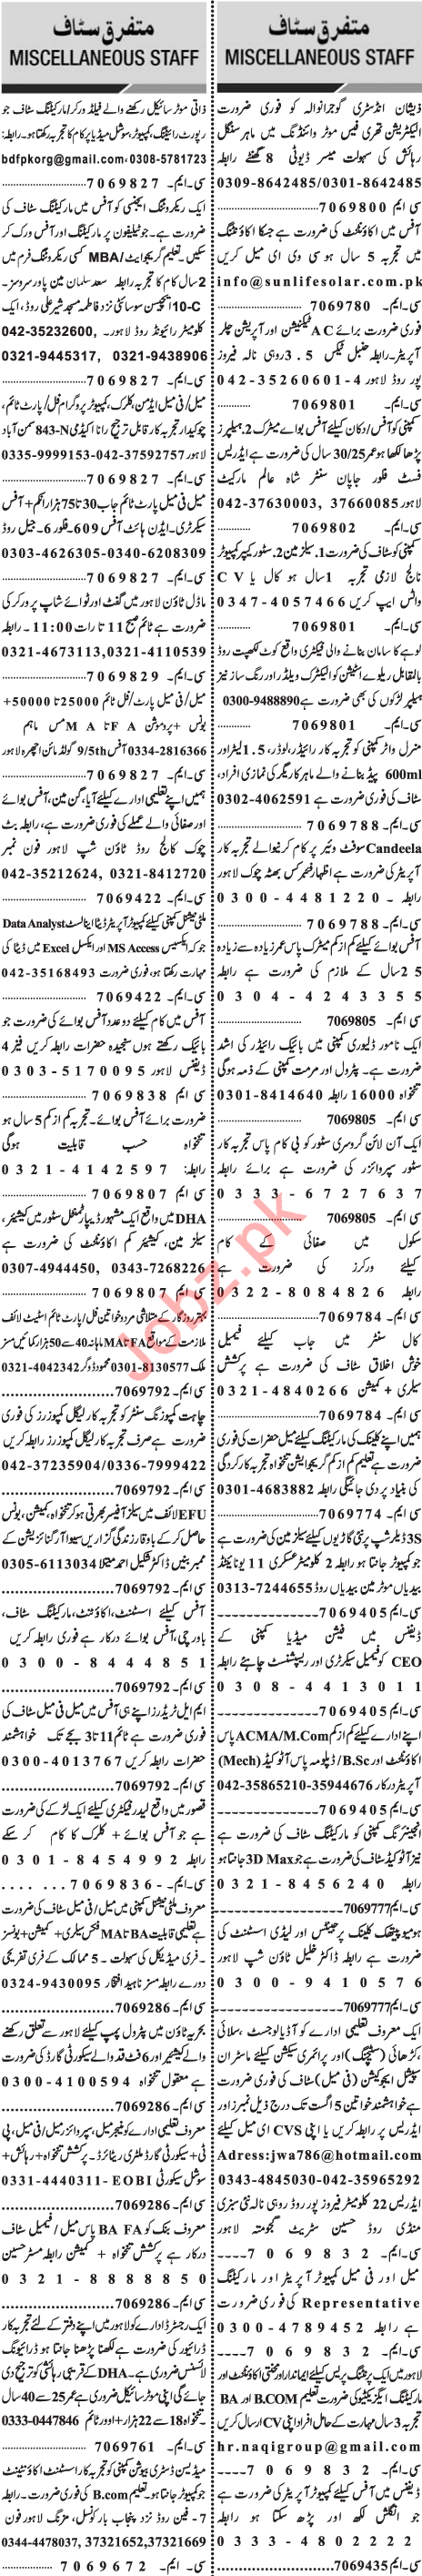 متفرق سٹاف
MISCELLANEOUS STAFF
ذیشان انڈسٹری گوجرانوالہ کو فوری ضرورت
الیکٹریشن تھری فیس موٹر وائنڈنگ میں ماہر سنگل
رہائش کی سہولت میسر ڈیوٹی 8 گھنٹے رابطہ
0309-8642485/0301-8642485
سی ایم 7069800
آفس میں اکاؤنٹنٹ کی ضرورت ہے جسکا اکاؤنٹنگ
میں تجربہ 5 سال ہو سی وی ای میل کریں
info@sunlifesolar.com.pk
سی۔ایم۔ 7069780
فوری ضرورت برائے AC ٹیکنیشن اور آپریشن چلر
آپریٹر۔رابطہ حنبل ٹیکس 3.5 روہی نالہ فیروز
پور روڈ لاہور 4-35260601-042
سی۔ایم۔ 7069801
کمپنی کو آفس/دکان کیلئے آفس بوائے میٹرک 2.ہیلپرز
پڑھا لکھا ہو عمر 30/25 سال کی ضرورت ہے ایڈریس
فسٹ فلور جاپان سنٹر شاہ عالم مارکیٹ
لاہور 042-37630003, 37660085
سی۔ایم۔ 7069802
کمپنی کو سٹاف کی ضرورت 1.سیلز مین 2.سٹور کیپر کمپیوٹر
نالج لازمی تجربہ 1 سال ہو کال یا CV
واٹس ایپ کریں 0347-4057466
سی۔ایم۔ 7069801
لوہے کا سامان بنانے والی فیکٹری واقع کوٹ لکھپت روڈ
بالمقابل ریلوے اسٹیشن کو الیکٹرک ویلڈر اور رنگ ساز نیز
ہیلپر لڑکوں کی بھی ضرورت ہے 0300-9488890
سی۔ایم۔ 7069801
منرل واٹر کمپنی کو تجربہ کار رائیڈر، لوڈر، 1.5 لیٹر اور
600ml پیڈ بنانے والے ماہر کاریگر کی نمازی افراد،
سٹاف کی فوری ضرورت ہے 0302-4062591
سی۔ایم۔ 7069788
Candeela سوفٹ ویئر پر کام کرنیوالے تجربہ کار
آپریٹر کی ضرورت ہے اظہار فیبرکس بھٹہ چوک لاہور
رابطہ۔ 0300-4481220
سی۔ایم۔ 7069788
آفس بوائے کیلئے کم از کم میٹرک پاس عمر زیادہ سے زیادہ
25 سال کے ملازم کی ضرورت ہے رابطہ
0304-4243355
سی ایم۔ 7069805
ایک نامور ڈلیوری کمپنی میں بائیک رائیڈر کی اشد
ضرورت ہے۔ پٹرول اور مرمت کمپنی کے ذمہ ہوگی
تنخواہ 16000 رابطہ 0301-8414640
سی ایم۔ 7069805
ایک آن لائن گروسری سٹور کو بی کام پاس تجربہ کار
سٹور سپروائزر کی ضرورت ہے برائے رابطہ
0333-6727637
سی ایم۔ 7069805
سکول میں صفائی کے کام
کیلئے ورکرز کی ضرورت ہے
رابطہ 0322-8084826
سی ایم۔ 7069784
کال سنٹر میں جاب کیلئے فیمیل
خوش اخلاق سٹاف کی ضرورت ہے پرکشش
سیلری + کمیشن 0321-4840266
سی ایم۔ 7069784
ہمیں اپنے کلینک کی مارکیٹنگ کیلئے میل حضرات کی فوری
ضرورت ہے تعلیم کم از کم گریجوایشن تنخواہ تجربہ کارکردگی
کی بنیاد پر دی جائیگی رابطہ 0301-4683882
سی ایم۔ 7069774
3S ڈیلرشپ پر نئی گاڑیوں کیلئے سیلز مین کی ضرورت ہے
جو کمپیوٹر جانتا ہو رابطہ 2 کلومیٹر عسکری 11 یونائیٹڈ
بیدیاں موٹر مین بیدیاں روڈ 0313-7244655
سی۔ایم 7069405
ڈیفنس میں فیشن میڈیا کمپنی کے
CEO کو فیمیل سیکرٹری اور ریسپشنسٹ چاہئے رابطہ
0308-4413011
سی۔ایم 7069405
اپنے ادارے کیلئے کم از کم ACMA/M.Com پاس
اکاؤنٹنٹ اور B.Sc/ڈپلومہ پاس آٹو کیڈ (Mech)
آپریٹر درکار 042-35865210-35944676
سی۔ایم 7069405
انجینئرنگ کمپنی کو مارکیٹنگ سٹاف کی ضرورت ہے
نیز آٹو کیڈ سٹاف کی ضرورت ہے جو 3D Max جانتا ہو
رابطہ 0321-8456240
سی۔ایم 7069777
ہومیوپیتھک کلینک پر جینٹس اور لیڈی اسسٹنٹ کی
ضرورت ہے رابطہ ڈاکٹر خلیل ٹاؤن شپ لاہور
0300-9410576
سی۔ایم 7069777
ایک معروف تعلیمی ادارے کو آڈیالوجسٹ، سلائی
،کڑھائی (سٹیچنگ) اور پرائمری سیکشن کیلئے ماسٹر ان
سپیشل ایجوکیشن (فی میل) سٹاف کی فوری ضرورت
ہے خواہشمند خواتین 5 اگست تک درج ذیل نمبرز اور
ایڈریس پر رابطہ کریں یا اپنی CVS ای میل کیلئے
Adress:jwa786@hotmail.com
0343-4845030-042-35965292
ایڈریس 22 کلومیٹر فیروز پور روڈ روہی نالہ نئی سبزی
منڈی روڈ حسین سٹریٹ گجومتہ لاہور
سی۔ایم۔ 7069832
میل اور فی میل کمپیوٹر آپریٹر اور مارکیٹنگ
Representative کی فوری ضرورت
ہے رابطہ 0300-4789452
سی۔ایم۔ 7069832
لاہور میں ایک پرنٹنگ پریس کیلئے ایماندار اور محنتی اکاؤنٹنٹ اور
مارکیٹنگ ایگزیکٹیو کی ضرورت تعلیم B.COM اور BA
تجربہ 3 سال مہارت کے حامل افراد اپنی CV ارسال کریں
hr.naqigroup@gmail.com
سی۔ایم۔ 7069832
ڈیفنس میں آفس کیلئے کمپیوٹر آپریٹر کی ضرورت ہے
جو انگلش لکھ اور پڑھ سکتا ہو رابطہ
0333-4802222
سی۔ایم۔ 7069435
متفرق سٹاف
MISCELLANEOUS STAFF
ذاتی موٹر سائیکل رکھنے والے فیلڈ ورکر/مارکیٹنگ سٹاف جو
رپورٹ رائیٹنگ، کمپیوٹر، سوشل میڈیا پر کام کا تجربہ رکھتا ہو۔ رابطہ:
bdfpkorg@gmail.com، 0308-5781723
سی۔ایم۔ 7069827
ایک ریکروٹنگ ایجنسی کو آفس میں مارکیٹنگ سٹاف کی
ضرورت ہے۔ جو ٹیلیفون پر مارکیٹنگ اور آفس ورک کر
سکیں۔ تعلیم گریجوایٹ/MBA کسی ریکروٹنگ فرم میں
2 سال کام کا تجربہ رابطہ سعد سلمان مین پاور سروسز۔
10-C ایجوکیشن سوسائٹی نزد فاطمہ مسجد شیر علی روڈ، ایک
کلومیٹر رائیونڈ روڈ لاہور۔ 042-35232600,
0321-9445317, 0321-9438906
سی۔ایم۔ 7069827
میل/فی میل ایڈمن، کلرک، کمپیوٹر پروگرام فل/پارٹ ٹائم،
چوکیدار تجربہ کار قابل ترجیح رانا اکیڈمی 843-N سمن آباد
لاہور 042-37592757-0335-9999153
سی۔ایم۔ 7069827
میل فی میل پارٹ ٹائم جاب 30 تا 75 ہزار انکم + آفس
سیکرٹری۔ ایڈن ہائٹ آفس 609۔ فلور 6۔ جیل روڈ
0303-4626305-0340-6208309
سی۔ایم۔ 7069827
ماڈل ٹاؤن لاہور میں گفٹ اور ٹوائے شاپ پر ورکر کی
ضرورت ہے ٹائم صبح 11 تا رات 11:00۔ رابطہ
0321-4673113,0321-4110539
سی۔ایم۔ 7069829
میل/فی میل پارٹ/فل ٹائم 25000 تا 50000+
بونس + پروموشن FA تا MA مس ماہم
0334-2816366 آفس 9/5th گولڈ مائن اچھرہ لاہور
سی۔ایم۔ 7069827
ہمیں اپنے تعلیمی ادارے کیلئے آیا، گن مین، آفس بوائے
اور صفائی والے عملے کی فوری ضرورت ہے، رابطہ بٹ
چوک کالج روڈ ٹاؤن شپ لاہور فون نمبر
042-35212624, 0321-8412720
سی۔ایم۔ 7069422
ملٹی نیشنل کمپنی کیلئے کمپیوٹر آپریٹر ڈیٹا اینالسٹ Data Analyst
جو کہ ایکسیس MS Access اور ایکسل Excel میں ڈیٹا کی
مہارت رکھتا ہو، فوری ضرورت 042-35168493
سی۔ایم۔ 7069422
آفس میں کام کیلئے دو عدد آفس بوائے کی ضرورت جو
بائیک رکھتے ہوں سنجیدہ حضرات رابطہ کریں فیز 4
ڈیفنس لاہور 0303-5170095
سی ایم 7069838
ضرورت برائے آفس بوائے۔ تجربہ کم از کم 5 سال ہو
تنخواہ حسب قابلیت ہوگی
رابطہ: 0321-4142597
سی ایم 7069807
DHA میں واقع ایک مشہور ڈیپارٹمنٹل سٹور میں کیشیئر،
سیلز مین، کیشیئر کم اکاؤنٹنٹ کی ضرورت ہے
0307-4944450, 0343-7268226
سی ایم 7069807
بہتر روزگار کے متلاشی مرد خواتین فل/پارٹ ٹائم اسٹیٹ لائف
ملازمت کے مواقع FA تا MA ماہانہ 40 سے 50 ہزار کمائیں مسز
ملک 0301-8130577 محمود ڈوگر 0321-4042342
سی ایم۔ 7069792
چاہت کمپوزنگ سنٹر کو تجربہ کار لیگل کمپوزرز کی فوری
ضرورت ہے صرف تجربہ کار لیگل کمپوزرز رابطہ کریں
042-37235904/0336-7999422
سی ایم۔ 7069792
EFU لائف میں سیلز آفیسر بھرتی ہو کر تنخواہ، کمیشن، بونس
حاصل کر کے باوقار زندگی گزاریں سیوا آرگنائزیشن کے
ممبر بنیں ڈاکٹر شکیل احمد مینگا 0305-6113034
سی ایم۔ 7069792
آفس کیلئے اسسٹنٹ، اکاؤنٹنٹ، مارکیٹنگ سٹاف،
باورچی، آفس بوائے درکار ہے فوری رابطہ کریں
0300-8444851
سی ایم۔ 7069792
ایم ایل ٹریڈرز اپنے ہی آفس میں میل فی میل سٹاف کی
فوری ضرورت ہے ٹائم 11 تا 3 بجے تک خواہشمند
حضرات رابطہ کریں 0300-4013767
سی ایم۔ 7069792
قصور میں واقع لیدر فیکٹری کیلئے ایک لڑکے کی ضرورت
ہے جو آفس بوائے + کلرک کا کام کر سکے
رابطہ 0301-8454992
سی ایم۔ 7069836
معروف ملٹی نیشنل کمپنی میں میل/فی میل سٹاف کی ضرورت
ہے تعلیمی قابلیت BA تا MA فکس سیلری + کمیشن + بونسز
۔ فری میڈیکل کی سہولت۔ 5 ممالک کے فری تفریحی
دورے رابطہ مسز ناہید افتخار 0324-9430095
سی ایم۔ 7069286
بحریہ ٹاؤن میں پٹرول پمپ کیلئے لاہور سے تعلق رکھنے
والے کیشیئر اور 6 فٹ قد والے سیکورٹی گارڈ کی ضرورت
ہے معقول تنخواہ 0300-4100594
سی ایم۔ 7069286
معروف تعلیمی ادارے کو منیجر میل، سپروائزر میل/فی میل، پی
ٹی + سیکورٹی گارڈ ملٹری ریٹائرڈ۔ پرکشش تنخواہ + رہائش +
سوشل سیکورٹی EOBI - 0331-4440311
سی ایم۔ 7069286
معروف بنک کو BA FA پاس میل/فیمیل سٹاف
درکار ہے پرکشش تنخواہ + کمیشن رابطہ مسٹر حسین
0321-8888850
سی ایم۔ 7069286
ایک رجسٹرڈ ادارے کو لاہور میں اپنے دفتر کے لئے تجربہ کار
ڈرائیور کی ضرورت ہے لکھنا پڑھنا جانتا ہو ڈرائیونگ
لائسنس ضروری ہے۔ DHA کے قریبی رہائشی کو ترجیح دی
جائے گی اپنی موٹر سائیکل ضروری ہے عمر 25 سے 40 سال
۔ تنخواہ 18 سے 22 ہزار + اوور ٹائم 0333-0447846
سی۔ایم۔ 7069761
میڈیسن ڈسٹری بیوشن کمپنی کو تجربہ کار اسسٹنٹ اکاؤنٹینٹ
جو کمپیوٹر جانتا ہو۔ تعلیم B.com کی فوری ضرورت۔ رابطہ
7۔ فین روڈ نزد پنجاب بار کونسل، مزنگ لاہور فون
0344-4478037, 37321652,37321669
سی۔ ایم۔ 7069672
Jobz.pk